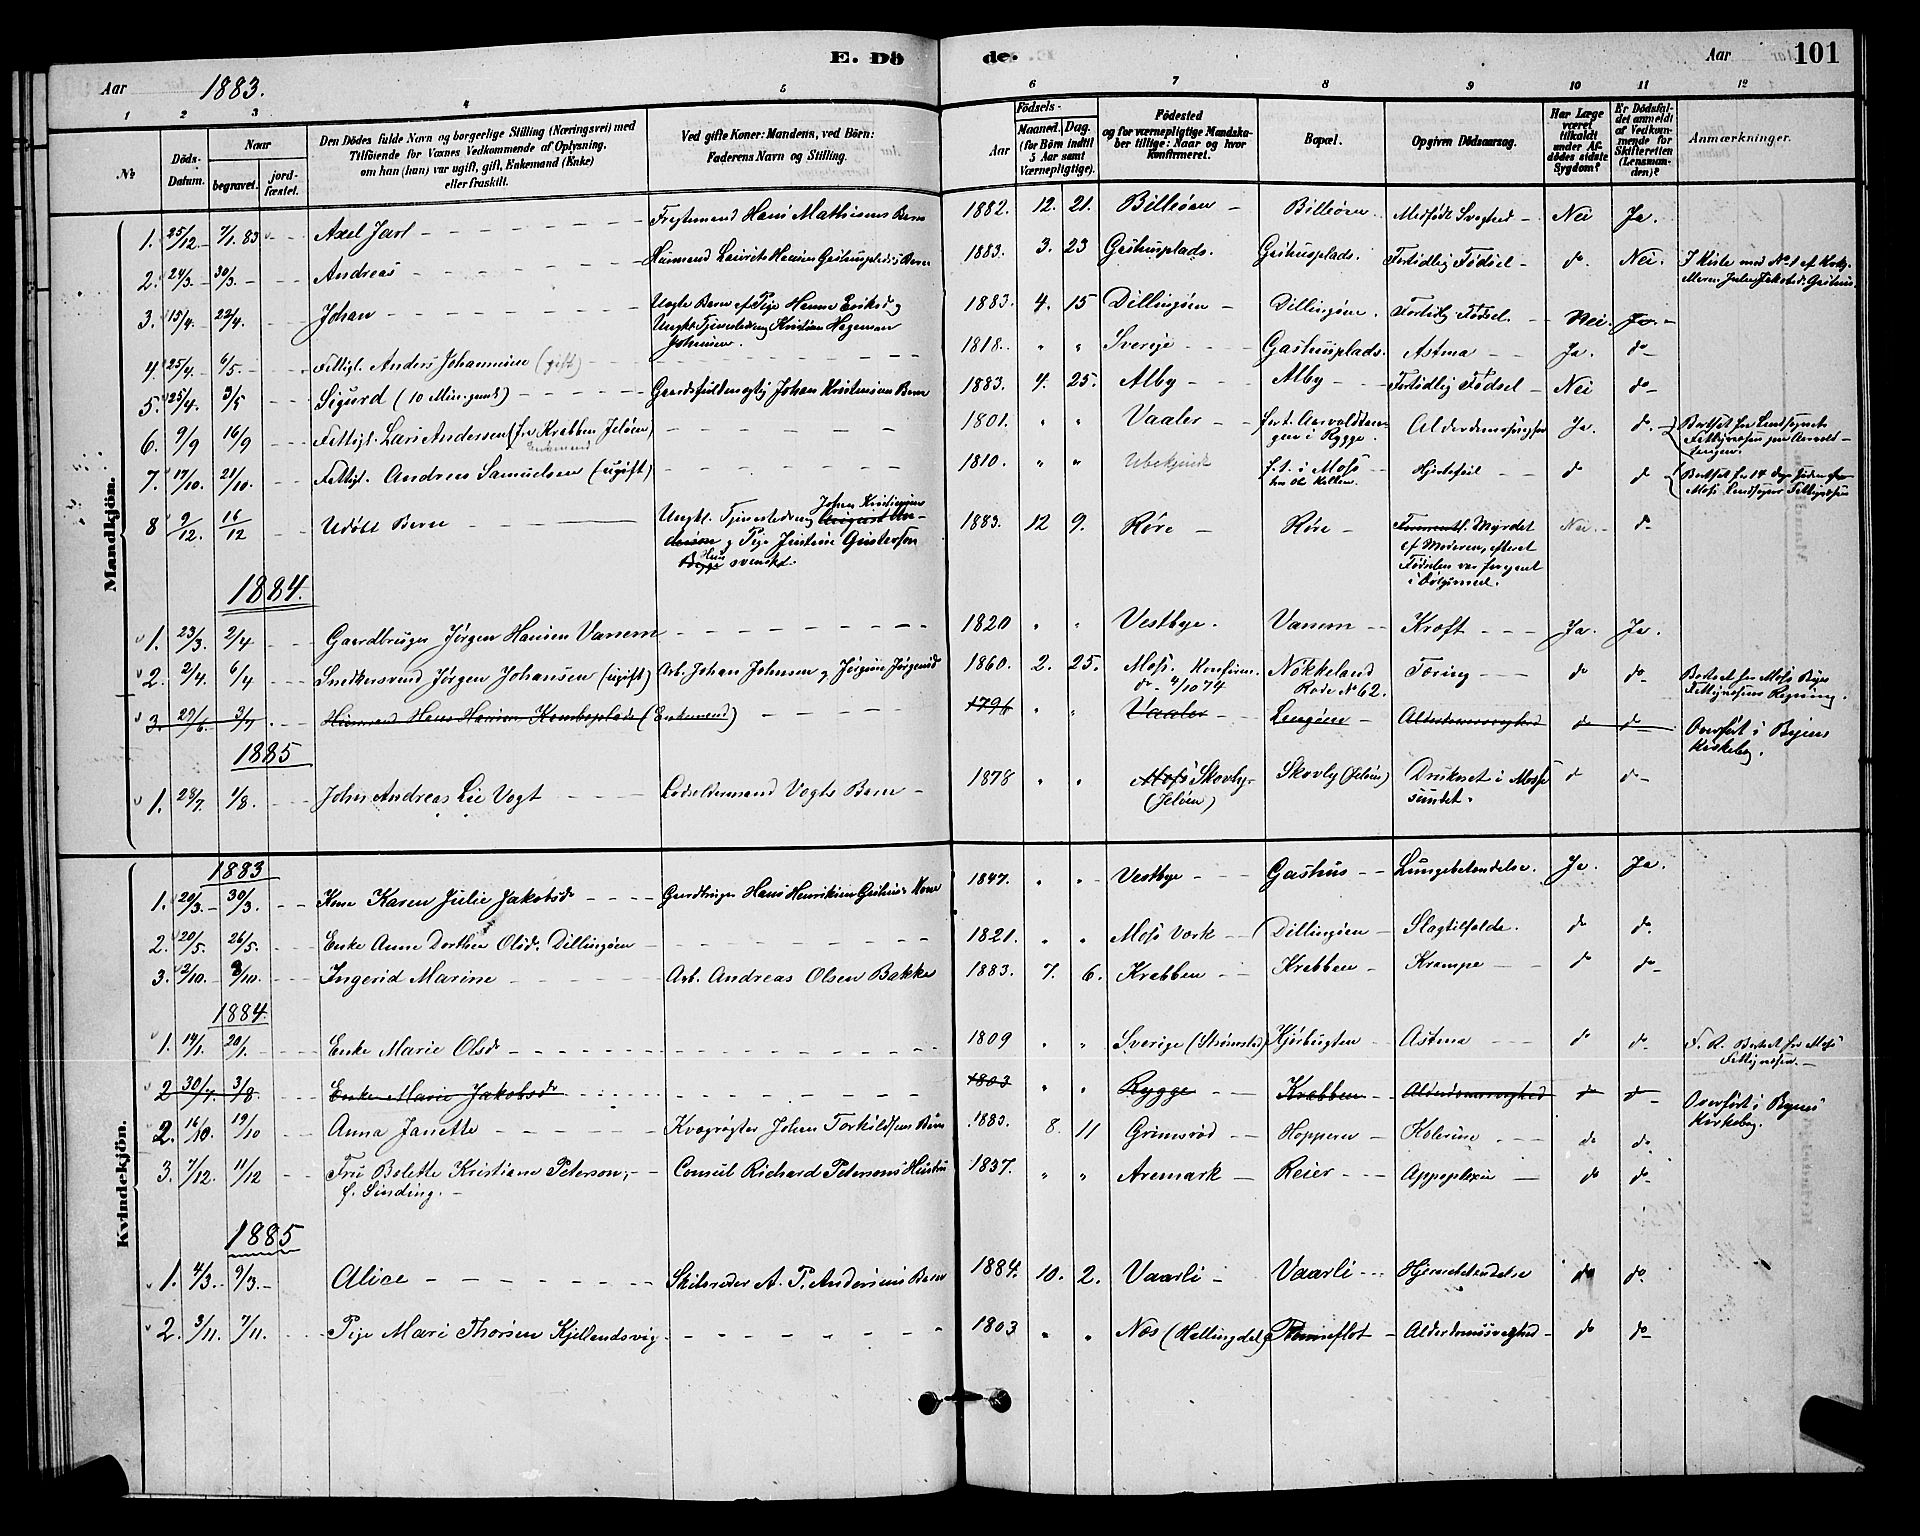 E. Dö
de.
Aar 101
Aar 1883.
1 2 3 4 5 6 7 8 9 10 11 12
No
Döds-Datum.
Naar
begravet.
jord-fæstet.
Den Dödes fulde Navn og borgerlige Stilling (Næringsvei) med
Tilföiende for Voxnes Vedkommende af Oplysning,
om han (hun) var ugift, gift, Enkemand (Enke)
eller fraskilt.
Ved gifte Koner: Mandens, ved Börn:
Faderens Navn og Stilling.
Födsels-
Aar
Maaned. Dag.
(for Börn indtil
5 Aar samt
Værnepligtige).
Födested
og for værnepligtige Mandska-
ber tillige: Naar og hvor
konfirmeret.
Bopæl.
Opgiven Dödsaarsag.
Har Læge
været
tilkaldt
under Af-
dödes sidste
Sygdom?
Er Dödsfal-
det anmeldt
af Vedkom-
mende for
Skifteretten
(Lensman-
den)?
Anmærkninger.
Mandkjön.
1. 25/12. 7/1. 83 Axel Jarl Fragtemand Hans Mathisens Barn 1882. 12. 21. Billeöen Billeöen. Medfödt Svaghed Nei Ja.
2. 24/3. 30/3. Andreas Husmand Laurits Hansen Gashuspladses Barn 1883. 3. 23 Gashusplads. Gashusplads. Fortidlig Födsel do. Nei. I Kiste med No 1 af Kvk.
Karen Julie Jakobsd. Gashus.
3. 15/4. 22/4. Johan Uægte Barn af Pige Hanna Eriksd. og
Ungk. Tjenestedreng Kristian Hageman
Johansen. 1883. 4. 15 Dillingöen Dillingöen. Fortidlig Födsel. Nei. Ja.
4. 25/4. 6/5. Fattigl. Anders Johannesen (gift) 1818. " " Sverige Gashusplads. Astma Ja. do
5. 25/4. 3/5 Sigurd (10 Min. gml.) Gaardsfuldmægtig Johan Kristensens Barn 1883. 4. 25. Alby Alby Fortidlig Födsel Nei do
6. 9/9 16/9 Fattigl. Lars Andersen (fra Krabben Jelöen)
Enkemand 1801. " " Vaaler fort. Aarvoldtan-
gen i Rygge. Ja. do.
7. 17/10. 21/10. Fattigl. Andreas Samuelsen (ugift) 1810. " " Ubekjendt f. t. i Moss Hjertefeil do do
8 9/12. 16/12 Udöbt Barn Ungk. Tjenestedreng Johan Kristiansen
August An-
dersen og Pige Justine Gustavsen
Begge svenske. 1883. 12 9. Röre Röre Myrdet
af Moderen, efteret
Födselen var foregaaet
i Dölgsmaal. Nei. do.
1884.
1. 23/3. 2/4 Gaardbruger Jörgen Hansen Vanem 1820 " " Vestbye. Vanem Kræft Ja. Ja.
2. 2/4. 6/4 Snedkersvend Jörgen Johansen (ugift) Arb. Johan Johnsen og Jörgine Jörgensd 1860. 2. 25. Moss. Konfirm.
do. 4/10 74 Nökkeland
Rode No 62. Tæring do do. Bortsat for Moss Byes
Fattigvæsens Regning.
3. 29/6. 3/7. Husmand Hans Hansen Kamboplads (Enkemand) 1796 " " Vaaler Lergöen Alderdomssvaghed do do Overfört i Byens
Kirkebog.
1885
1. 28/7. 1/8. John Andreas Lie Vogt Lodsoldermand Vogts Barn 1878 " " Moss Skovly
(Jelöen) Skovly (Jelöen) Druknet i Mosse
sundet. do do
Kvindekjön.
1883
1. 20/3. 30/3. Kone Karen Julie Jakobsd. Gaardbruger Hans Henriksens Gashus Kone 1847. " " Vestbye Gashus Lungebetændelse. Ja. Ja.
2. 20/5. 26/5. Enke Anne Dorthea Olsd. Dillingöen 1821. " " Moss Værk Dillingöen Slagtilfælde. do do.
3. 2/10. 8/10. Ingerid Marine Arb. Andreas Olsen Bakke 1883. 7. 6. Krabben Krabben Krampe do do
1884.
1. 14/1. 20/1. Enke Marie Olsd 1809 " " Sverige (Strömstad) Kjörbugten Astma do do. F. A. Bortsat fra Moss
Fattigvæsen.
2 30/7. 3/8. Enke Marie Jakobsd 1803 " " Rygge Krabben Alderdomssvaghed do do Overfört i Byens
Kirkebog.
2. 16/10. 19/10 Anna Janette Kvægrögter Johan Torkildsens Barn 1883. 8. 11 Grimsröd Hoppern Kolerine do do.
3. 7/12. 11/12 Fru Bolette Kristiane Peterson,
f. Sinding. Consul Richard Petersons Hustru 1837. " " Aremark Reier Appoplexie do do
1885
1. 4/3. 9/3. Alice Skibsreder A. P. Andersens Barn 1884. 10. 2. Vaarli Vaarli Hjernebetændelse do do.
2. 3/11. 7/11. Pige Mari Thorsen Kjellandsvig 1803 " " Næs (Hallingdal) Alderdomssvaghed do do